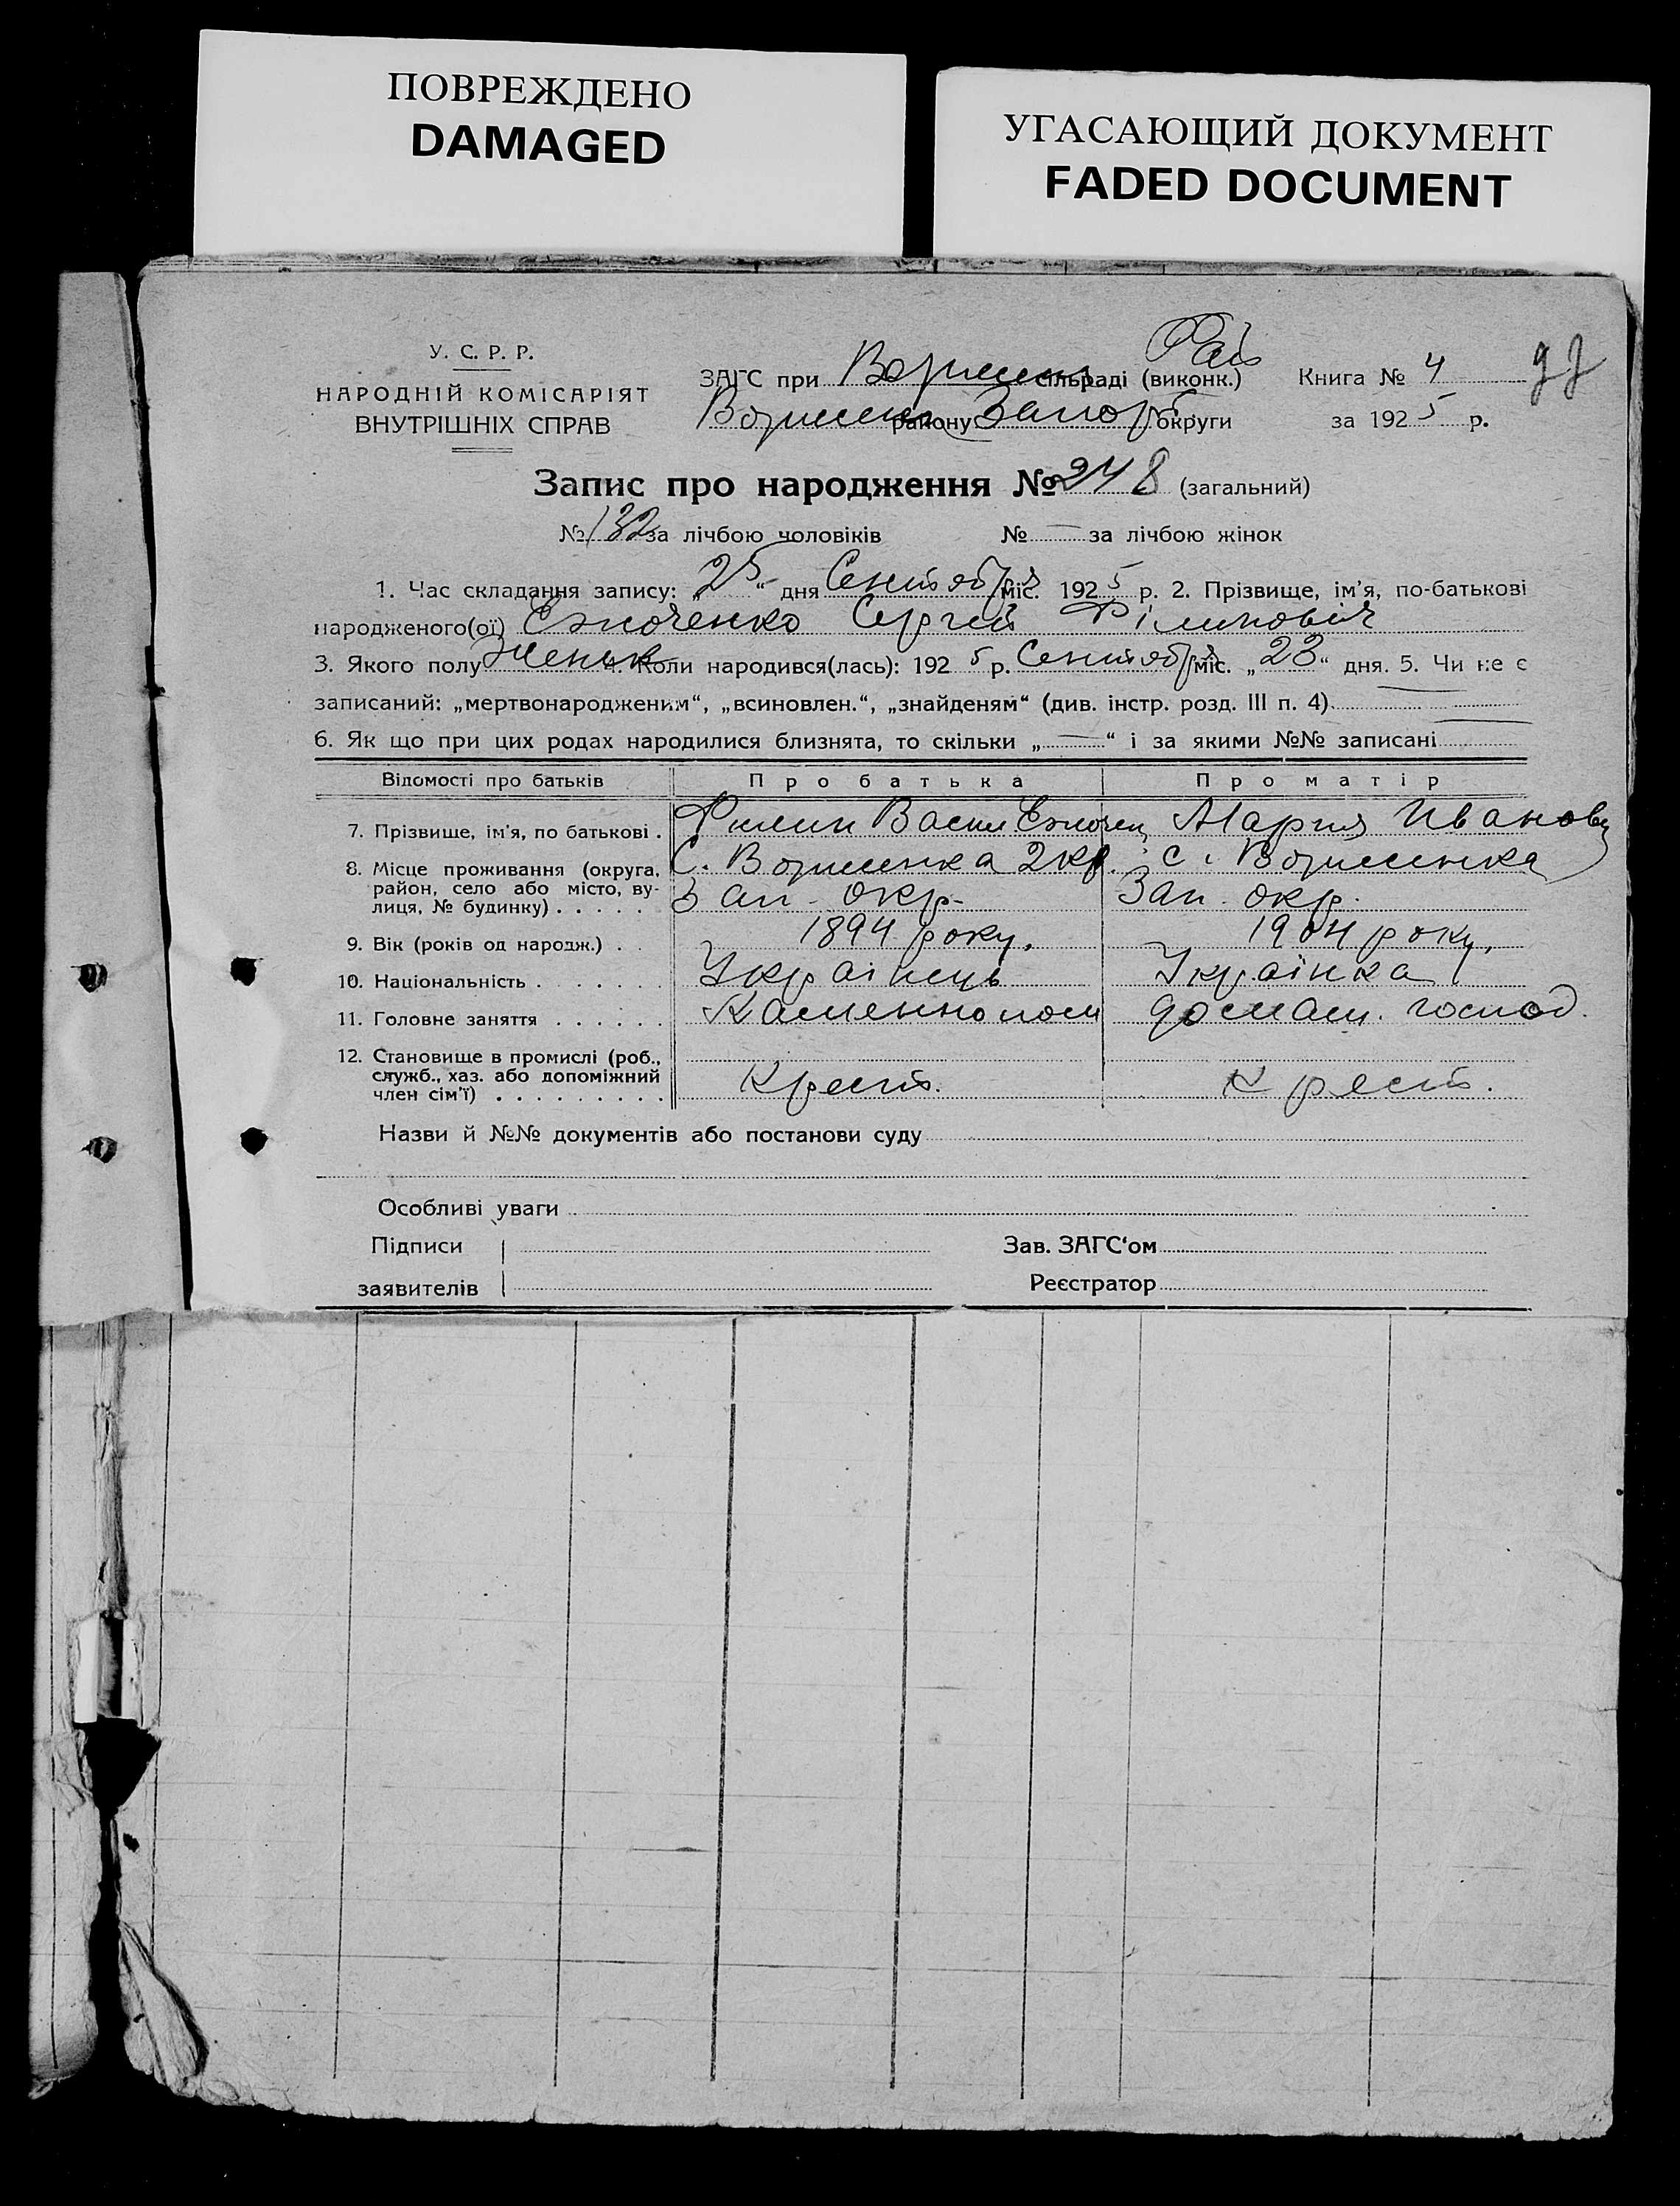 ПОВРЕЖДЕНО
DAMAGED
УГАСАЮЩИЙ ДОКУМЕНТ
FADED DOCUMENT
У. С. Р. Р.
НАРОДНІЙ КОМІСАРІЯТ
ВНУТРІШНІХ СПРАВ
ЗАГС при сільраді (виконк.) Книга № 4
району Запор округи за 1925 р.
Запис про народження № 248 (загальний)
№ 132 за лічбою чоловіків № — за лічбою жінок
1. Час складання запису: „25“ дня Сентября міс. 1925 р. 2. Прізвище, ім'я, по-батькові
народженого(ої) Сергей Філипович
3. Якого полу 4. Коли народився(лась): 1925 р. Сентября міс. „23“ дня. 5. Чи не є
записаний: „мертвонародженим“, „всиновлен.“, „знайденям“ (див. інстр. розд. III п. 4)
6. Як що при цих родах народилися близнята, то скільки „—“ і за якими №№ записані
Відомості про батьків Про батька Про матір
7. Прізвище, ім'я, по батькові . Филип Васил Мария Ивановн
8. Місце проживання (округа, район, село або місто, вулиця, № будинку) . . . . .
С. 2 кр. с.
Зап. окр. Зап. окр.
9. Вік (років од народж.) . . 1894 року. 1904 року.
10. Національність . . . . . . . Українець Українка
11. Головне заняття . . . . . . Каменнолом домаш. господ.
12. Становище в промислі (роб., служб., хаз. або допоміжний член сім'ї) . . . . . . . . .
Крест. Крест.
Назви й №№ документів або постанови суду
Особливі уваги
Підписи
заявителів
Зав. ЗАГС'ом
Реєстратор